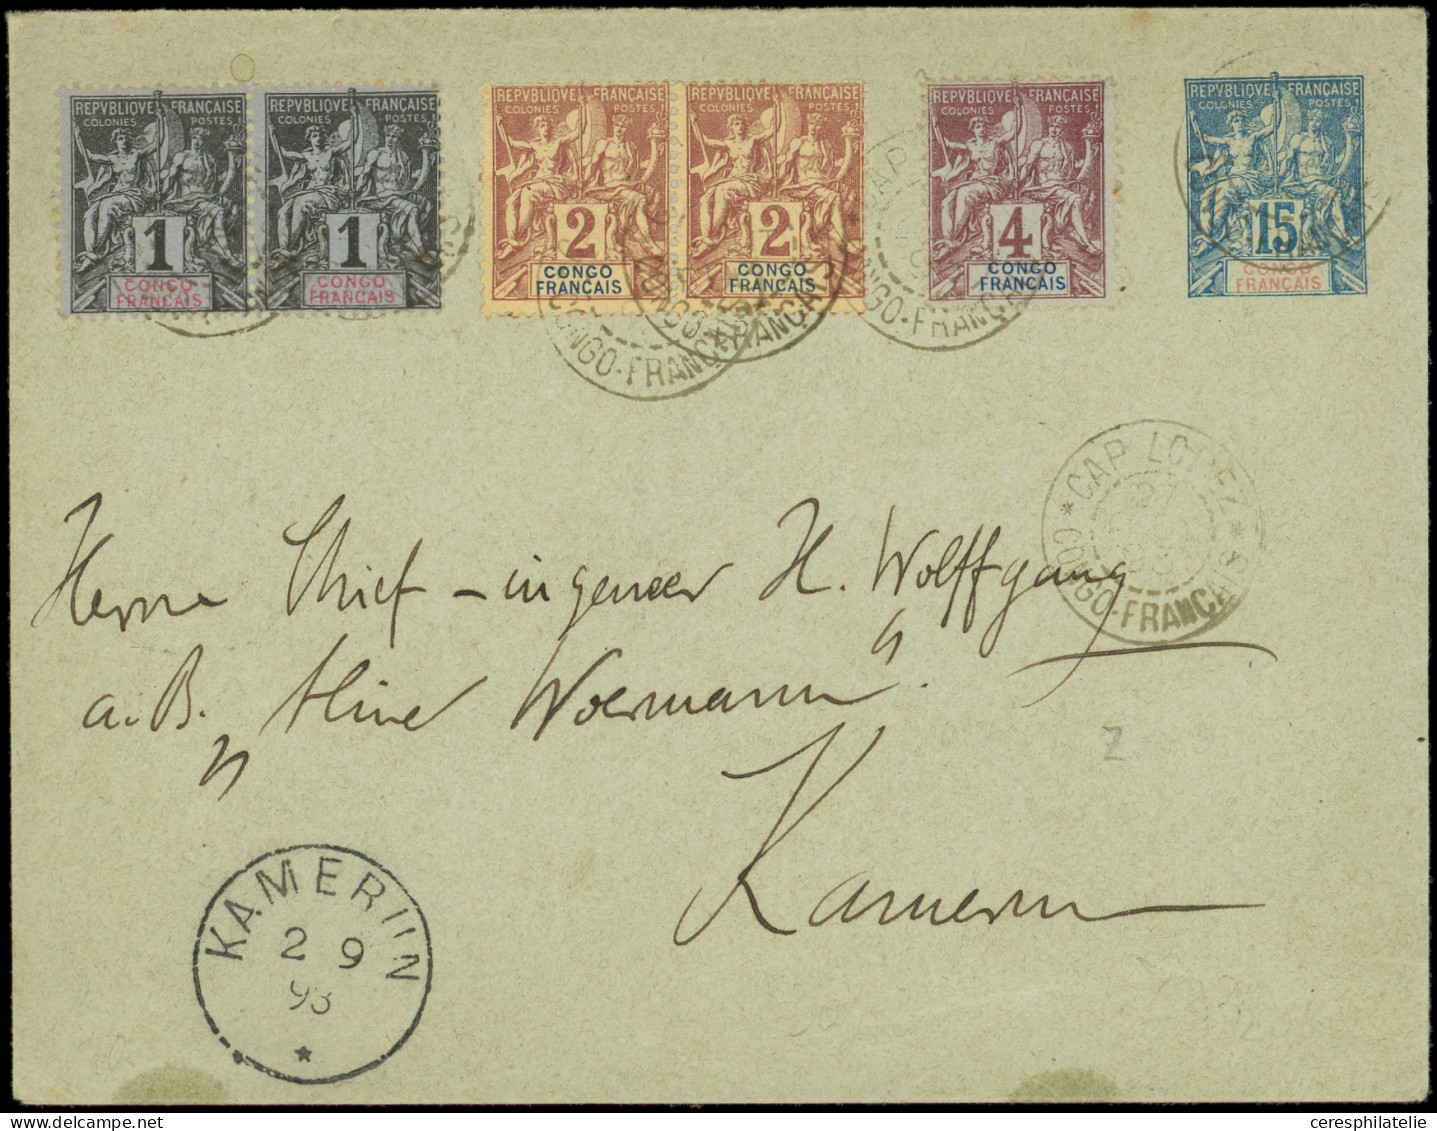 REPVBLIQUE FRANÇAISE
COLONIES POSTES
1
CONGO
FRANÇAIS
REPVBLIQUE FRANÇAISE
COLONIES POSTES
1
CONGO
FRANÇAIS
REPVBLIQUE FRANÇAISE
COLONIES POSTES
2
CONGO
FRANÇAIS
REPVBLIQUE FRANÇAISE
COLONIES POSTES
2
CONGO
FRANÇAIS
REPVBLIQUE FRANÇAISE
COLONIES POSTES
4
CONGO
FRANÇAIS
REPVBLIQUE FRANÇAISE
COLONIES POSTES
15
CONGO
FRANÇAIS
CONGO-FRANÇAIS
CONGO-FRANÇAIS
* CAP LOPEZ *
27
93
CONGO-FRANÇAIS
Herrn Chief-ingeneer H. Wolffgang
a.B. "Aline Woermann"
Kamerun
Z
KAMERUN
2 9
93
*
ceresphilatelie